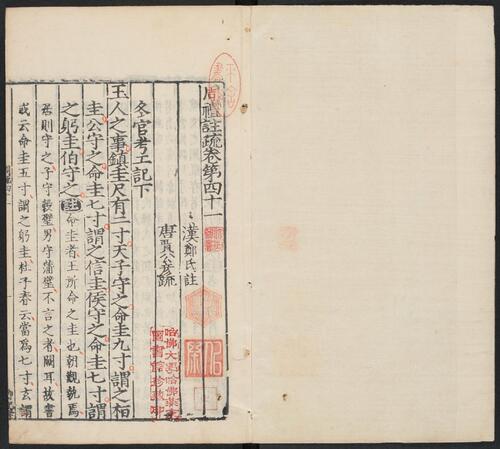 周禮註疏卷第四十一
漢鄭氏註
唐賈公彥疏
冬官考工記下
玉人之事鎮圭尺有二寸天子守之命圭九寸謂之桓
圭公守之命圭七寸謂之信圭侯守之命圭七寸謂
之躬圭伯守之註命圭者王所命之圭也朝覲執焉
居則守之子守穀璧男守蒲璧不言之者闕耳故書
或云命圭五寸謂之躬圭杜子春云當爲七寸玄謂
哈佛大學哈佛燕京
圖書館珍藏印